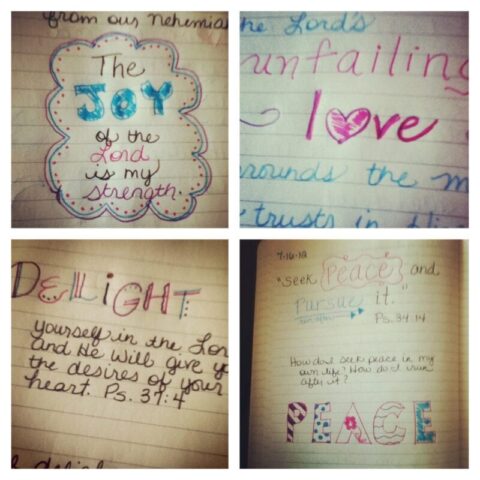 from our Nehemia
The
JOY
of the
Lord
is my
strength
he Lord's
unfailing
love
rounds the m
trusts in Hi
DELIGHT
yourself in the Lor
and He will give y
the desires of your
heart. Ps. 37:4
7-16-12
"Seek Peace and
Pursue it."
Ps. 34:14
How do I seek peace in my
own life? How do I run
after it?
PEACE